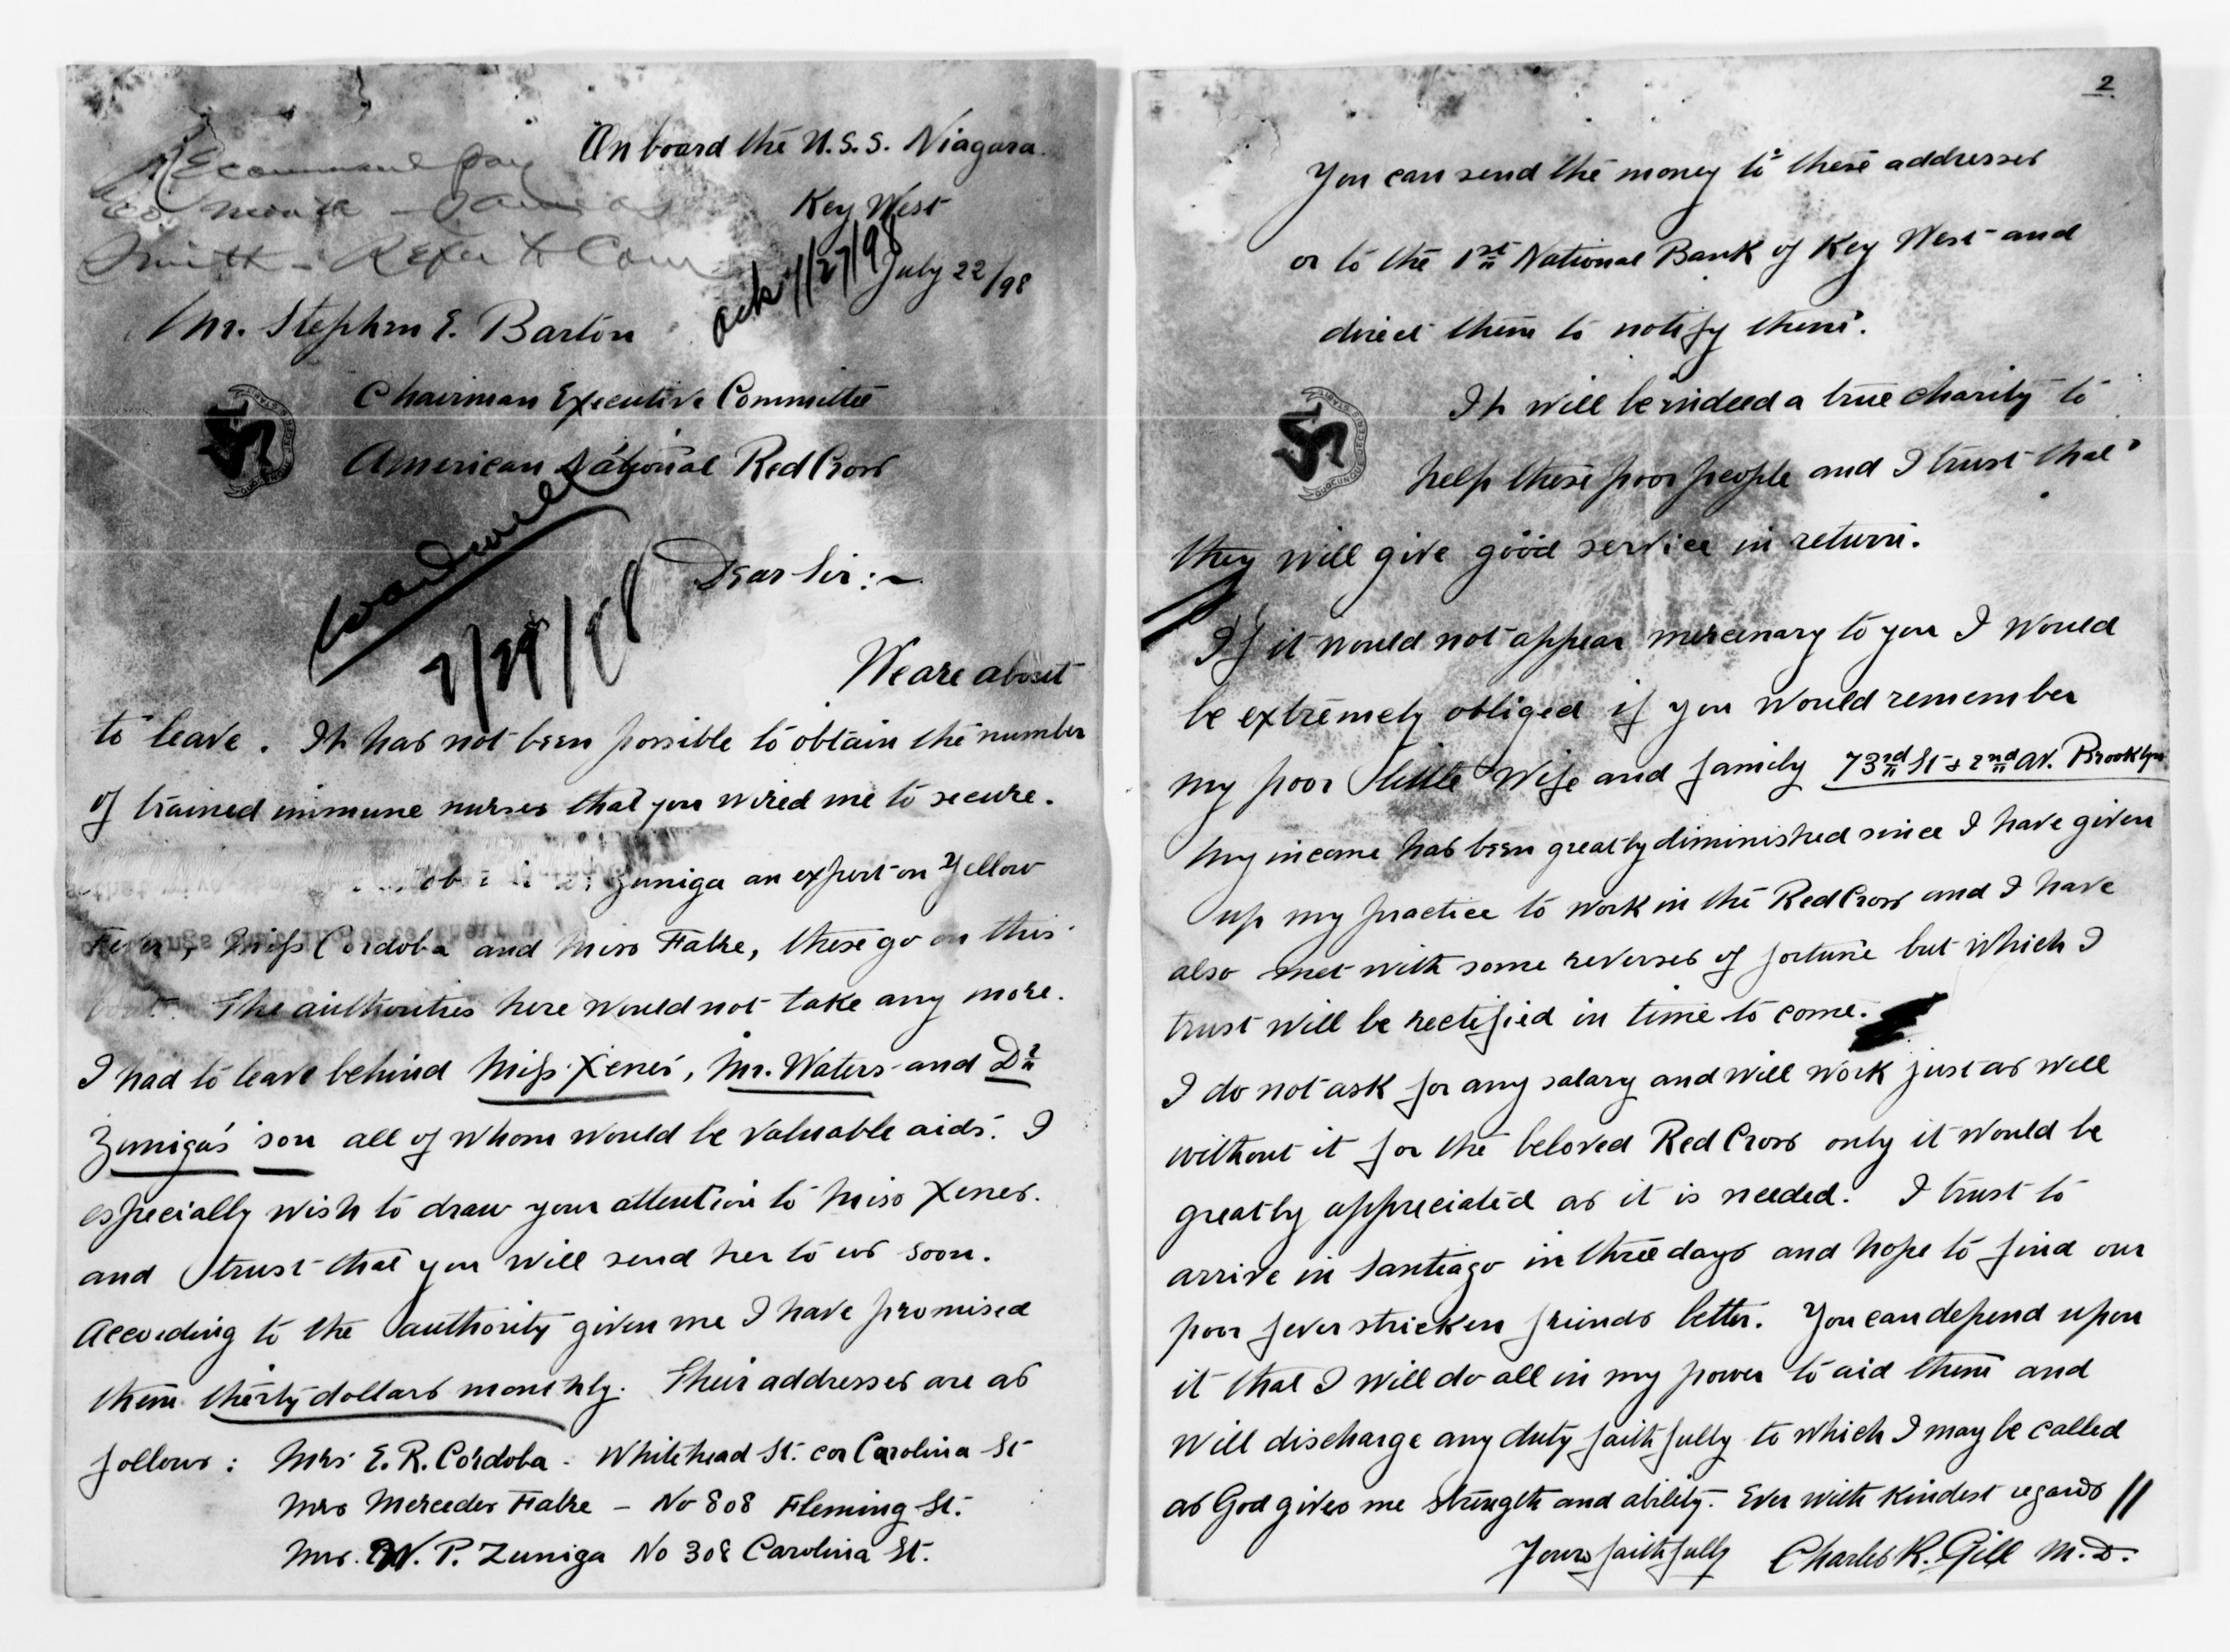 On board the U.S.S. Niagara.
Recommend pay
Key West
month
Smith - Refer to Com
ack 7/27/98
July 22/98
Mr. Stephen E. Barton
Chairman Executive Committee
American National Red Cross
QUOCUNQUE JECERIS STABIT
7/29/98
Dear Sir:~
We are about
to leave. It has not been possible to obtain the number
of trained immune nurses that you wired me to secure.
Zuniga an expert on Yellow
Fever, Miss Cordoba and Miss Falke, these go on this
boat. The authorities here would not take any more.
I had to leave behind Miss Xenes, Mr. Waters and Dr
Zuniga's son all of whom would be valuable aids. I
especially wish to draw your attention to Miss Xenes.
and trust that you will send her to us soon.
According to the authority given me I have promised
them thirty dollars monthly. Their addresses are as
follows: Mrs E. R. Cordoba - Whitehead St. cor Carolina St
Mrs Mercedes Falke - No 808 Fleming St.
Mrs. W. P. Zuniga No 308 Carolina St.
2
You can send the money to these addresses
or to the 1st National Bank of Key West and
direct them to notify them.
It will be indeed a true charity to
QUOCUNQUE JECERIS STABIT
help these poor people and I trust that
they will give good service in return.
If it would not appear mercenary to you I would
be extremely obliged if you would remember
my poor little Wife and family 73rd St & 2nd av. Brooklyn
My income has been greatly diminished since I have given
up my practice to work in the Red Cross and I have
also met with some reverses of fortune but which I
trust will be rectified in time to come.
I do not ask for any salary and will work just as well
without it for the beloved Red Cross only it would be
greatly appreciated as it is needed. I trust to
arrive in Santiago in three days and hope to find our
poor fever stricken friends better. You can depend upon
it that I will do all in my power to aid them and
will discharge any duty faithfully to which I may be called
as God gives me strength and ability. Ever with kindest regards
Yours faithfully Charles R. Gill M.D.